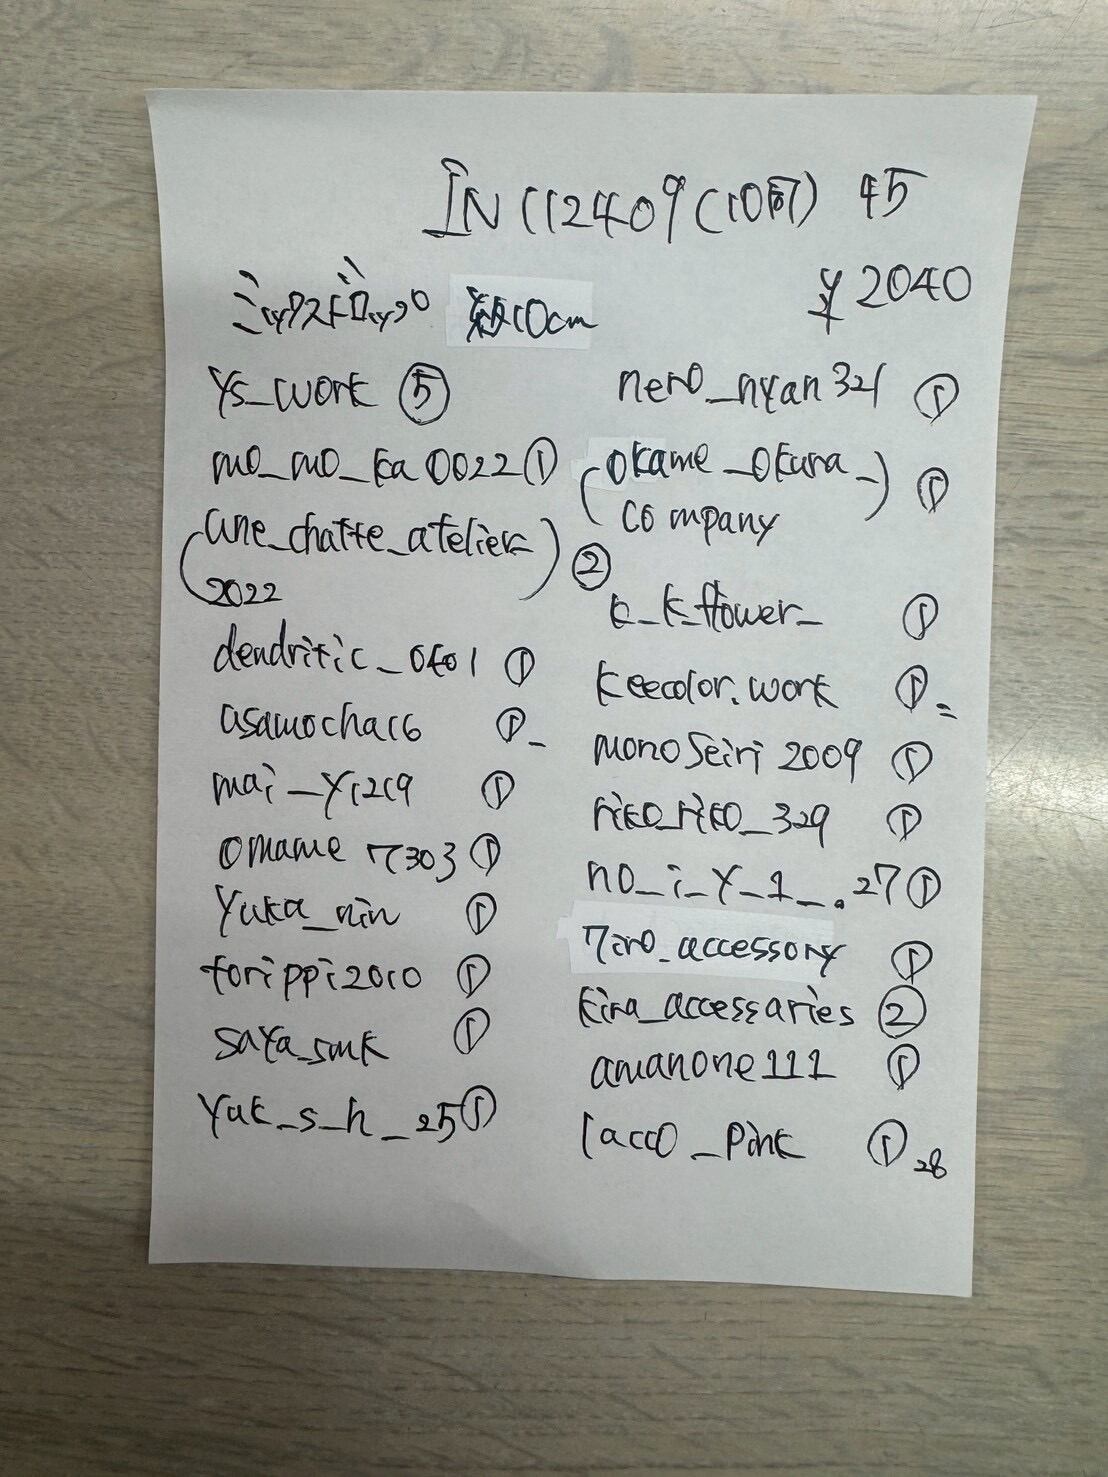 IN112409(10問) 45
ミックスドロップ 級10cm
¥2040
Ys_work ⑤
mo_mo_ka0022 ①
(une_chatte_atelier_
2022) ②
dendritic_0401 ①
asamocha16 ①
mai_y1219 ①
omame7303 ①
Yuka_nin ①
torippi2010 ①
saya_smk ①
Yuk_s_h_25 ①
nero_nyan321 ①
(okame_okura_)
company ①
k_k_flower_ ①
keecolor.work ①
monoseiri2009 ①
riko_riko_329 ①
no_i_y_1_.27 ①
7iro_accessory ①
kira_accessaries ②
amanone111 ①
lacco_pink ① 28